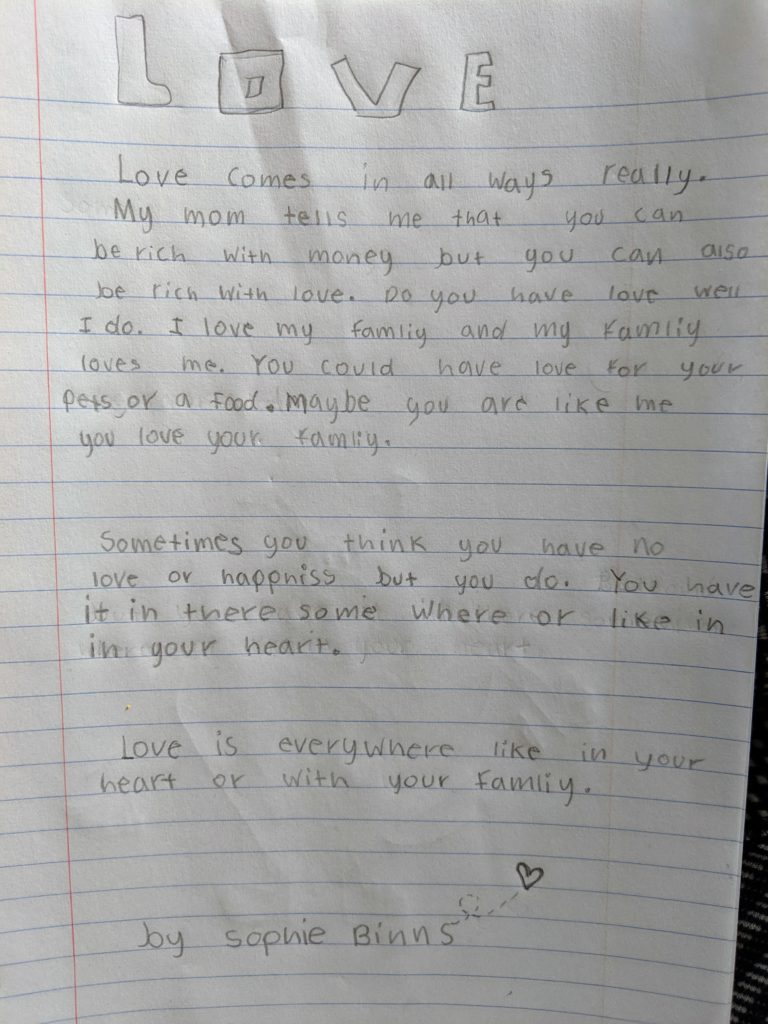 LOVE
Love comes in all ways really.
My mom tells me that you can
be rich with money but you can also
be rich with love. Do you have love well
I do. I love my famliy and my famliy
loves me. You could have love for your
pets or a food. Maybe you are like me
you love your famliy.
Sometimes you think you have no
love or happniss but you do. You have
it in there some where or like in
in your heart.
Love is everywhere like in your
heart or with your famliy.
by Sophie Binns